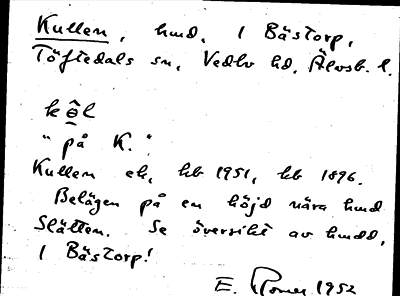 Kullen, hmd. 1 Bästorp,
Töftedals sn, Vedbo hd, Älvsb. l.
kөl
"på K."
Kullen ek, hb 1951, kb 1896.
Belägen på en höjd nära hmd
Slätten. Se översikt av hmdd,
1 Bästorp!
E. 1952